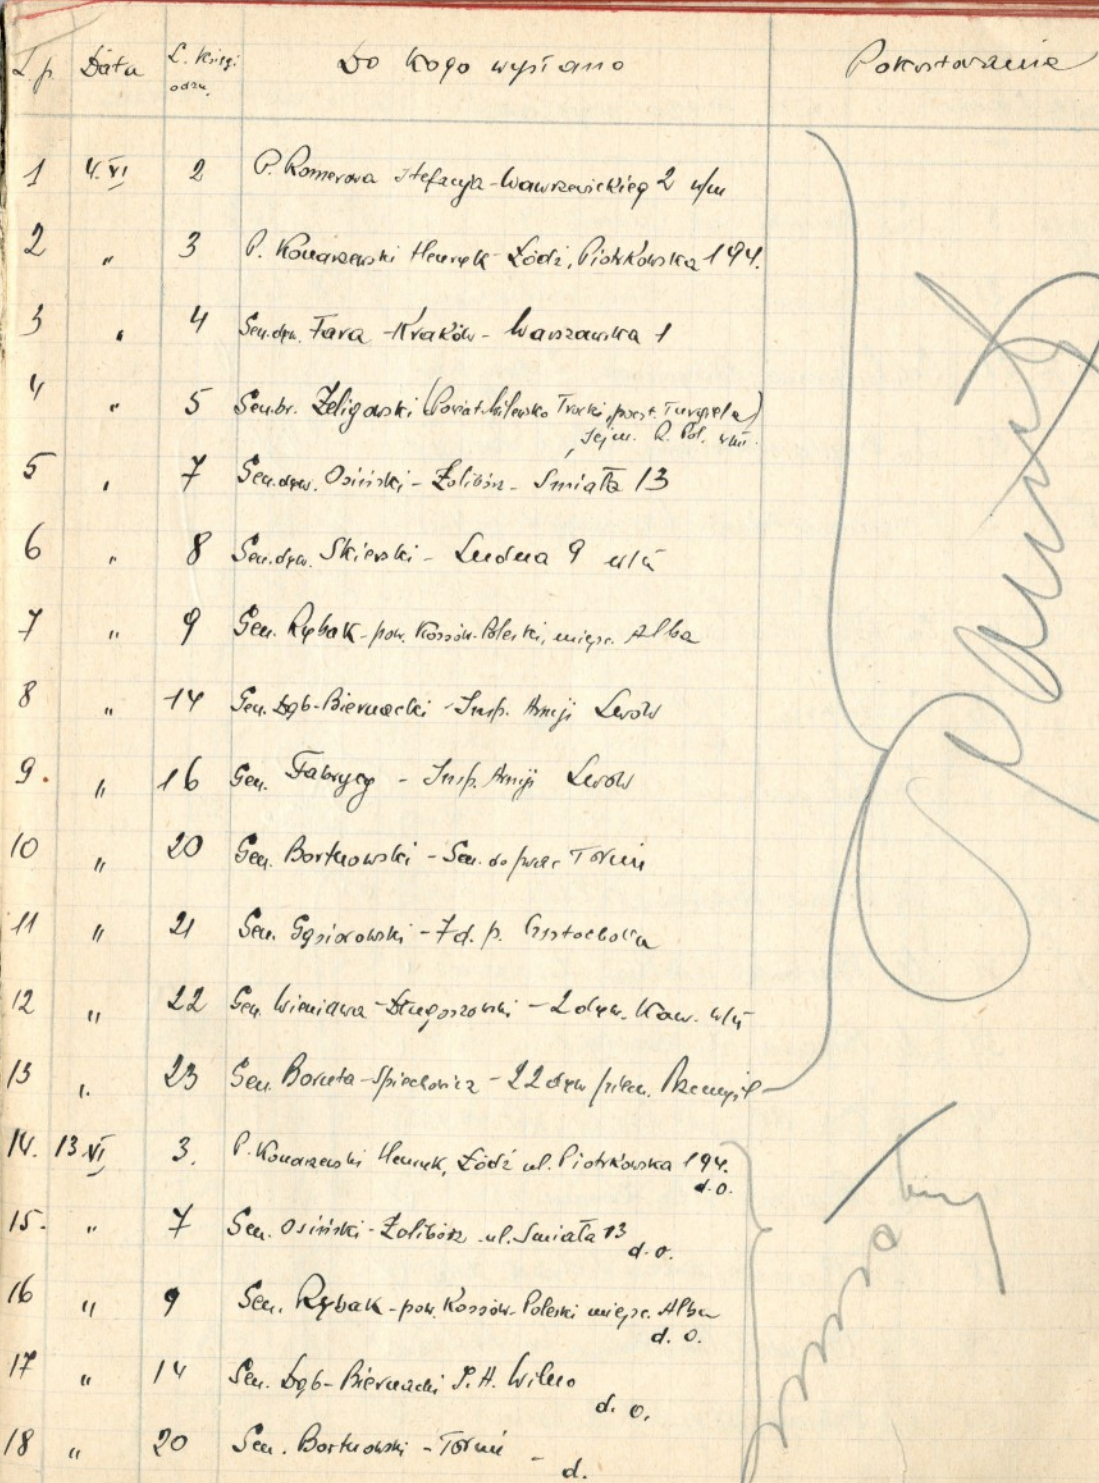 L.p. Data L. Księgi odzn. Do kogo wysłano Pokwitowanie
1 4.VI 2 P. Romerowa Stefanja - Wawrzeckiego 2 w/m
2 " 3 P. Konarzewski Henryk - Łódź, Piotrkowska 194.
3 " 4 Gen. dyw. Fara - Kraków - Warszawska 1
4 " 5 Gen. br. Żeligowski (Powiat Wileńsko Trocki, poczt. Turgiele)
Sejm. R. Pol.
5 " 7 Gen. dyw. Osiński - Żolibórz - Śmiała 13
6 " 8 Gen. dyw. Skierski - Ludna 9 w/m
7 " 9 Gen. Rybak - pow. Kossów-Poleski, miejsc. Alba
8 " 14 Gen. Dąb-Biernacki - Insp. Armji Lwów
9. " 16 Gen. Fabrycy - Insp. Armji Lwów
10 " 20 Gen. Bortnowski - Gen. do prac Toruń
11 " 21 Gen. Gąsiorowski - 7 d. p. Częstochowa
12 " 22 Gen. Wieniawa-Długoszowski - 2 dyw. Kaw. w/m
13 " 23 Gen. Boruta-Spiechowicz - 22 dyw piech. Przemyśl
14. 13 VI 3. P. Konarzewski Henryk, Łódź ul. Piotrkowska 194.
d.o.
15. " 7 Gen. Osiński - Żolibórz ul. Śmiała 13
d. o.
16 " 9 Gen. Rybak - pow. Kossów-Poleski miejsc. Alba
d. o.
17 " 14 Gen. Dąb-Biernacki I. A. Wilno
d. o.
18 " 20 Gen. Bortnowski - Toruń -
d.